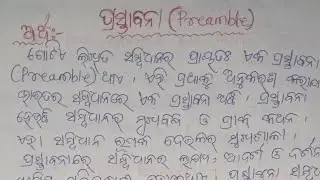 ପ୍ରସ୍ତାବନା (Preamble)
ଅର୍ଥ:-
ଗୋଟିଏ ଲିଖିତ ସମ୍ବିଧାନର ପ୍ରାୟତଃ ଏକ ପ୍ରସ୍ତାବନା
(Preamble) ଥାଏ । ଏହି ପ୍ରଥାକୁ ଅନୁକରଣ କରାଯାଇ
ଭାରତର ସମ୍ବିଧାନରେ ଏକ ପ୍ରସ୍ତାବନା ଅଛି । ପ୍ରସ୍ତାବନା
ହେଉଛି ସମ୍ବିଧାନର ମୁଖବନ୍ଧ ଓ ପ୍ରାକ୍ କଥନ ।
ଏହା ସମ୍ବିଧାନ ରୂପକ ଦେହକର ମୁଖଶାଳା ।
ପ୍ରସ୍ତାବନାରେ ସମ୍ବିଧାନର ଲକ୍ଷ୍ୟ, ଆଦର୍ଶ ଓ ଦର୍ଶନ
ପ୍ରସ୍ତାବନା ସମ୍ବିଧାନ